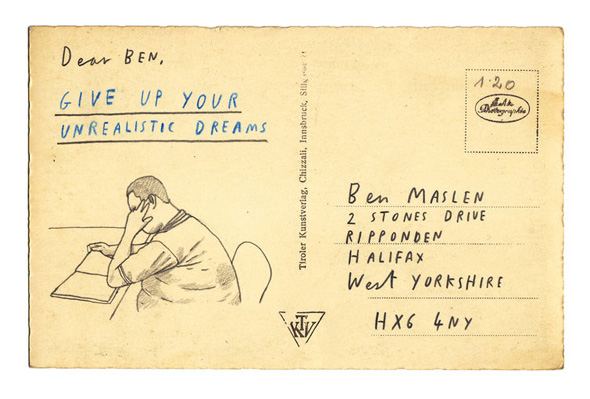 Dear BEN,
GIVE UP YOUR
UNREALISTIC DREAMS
Tiroler Kunstverlag, Chizzali, Innsbruck,
1·20
Echte
Photographie
Ben MASLEN
2 STONES DRIVE
RIPPONDEN
HALIFAX
West YORKSHIRE
HX6 4NY
TKV